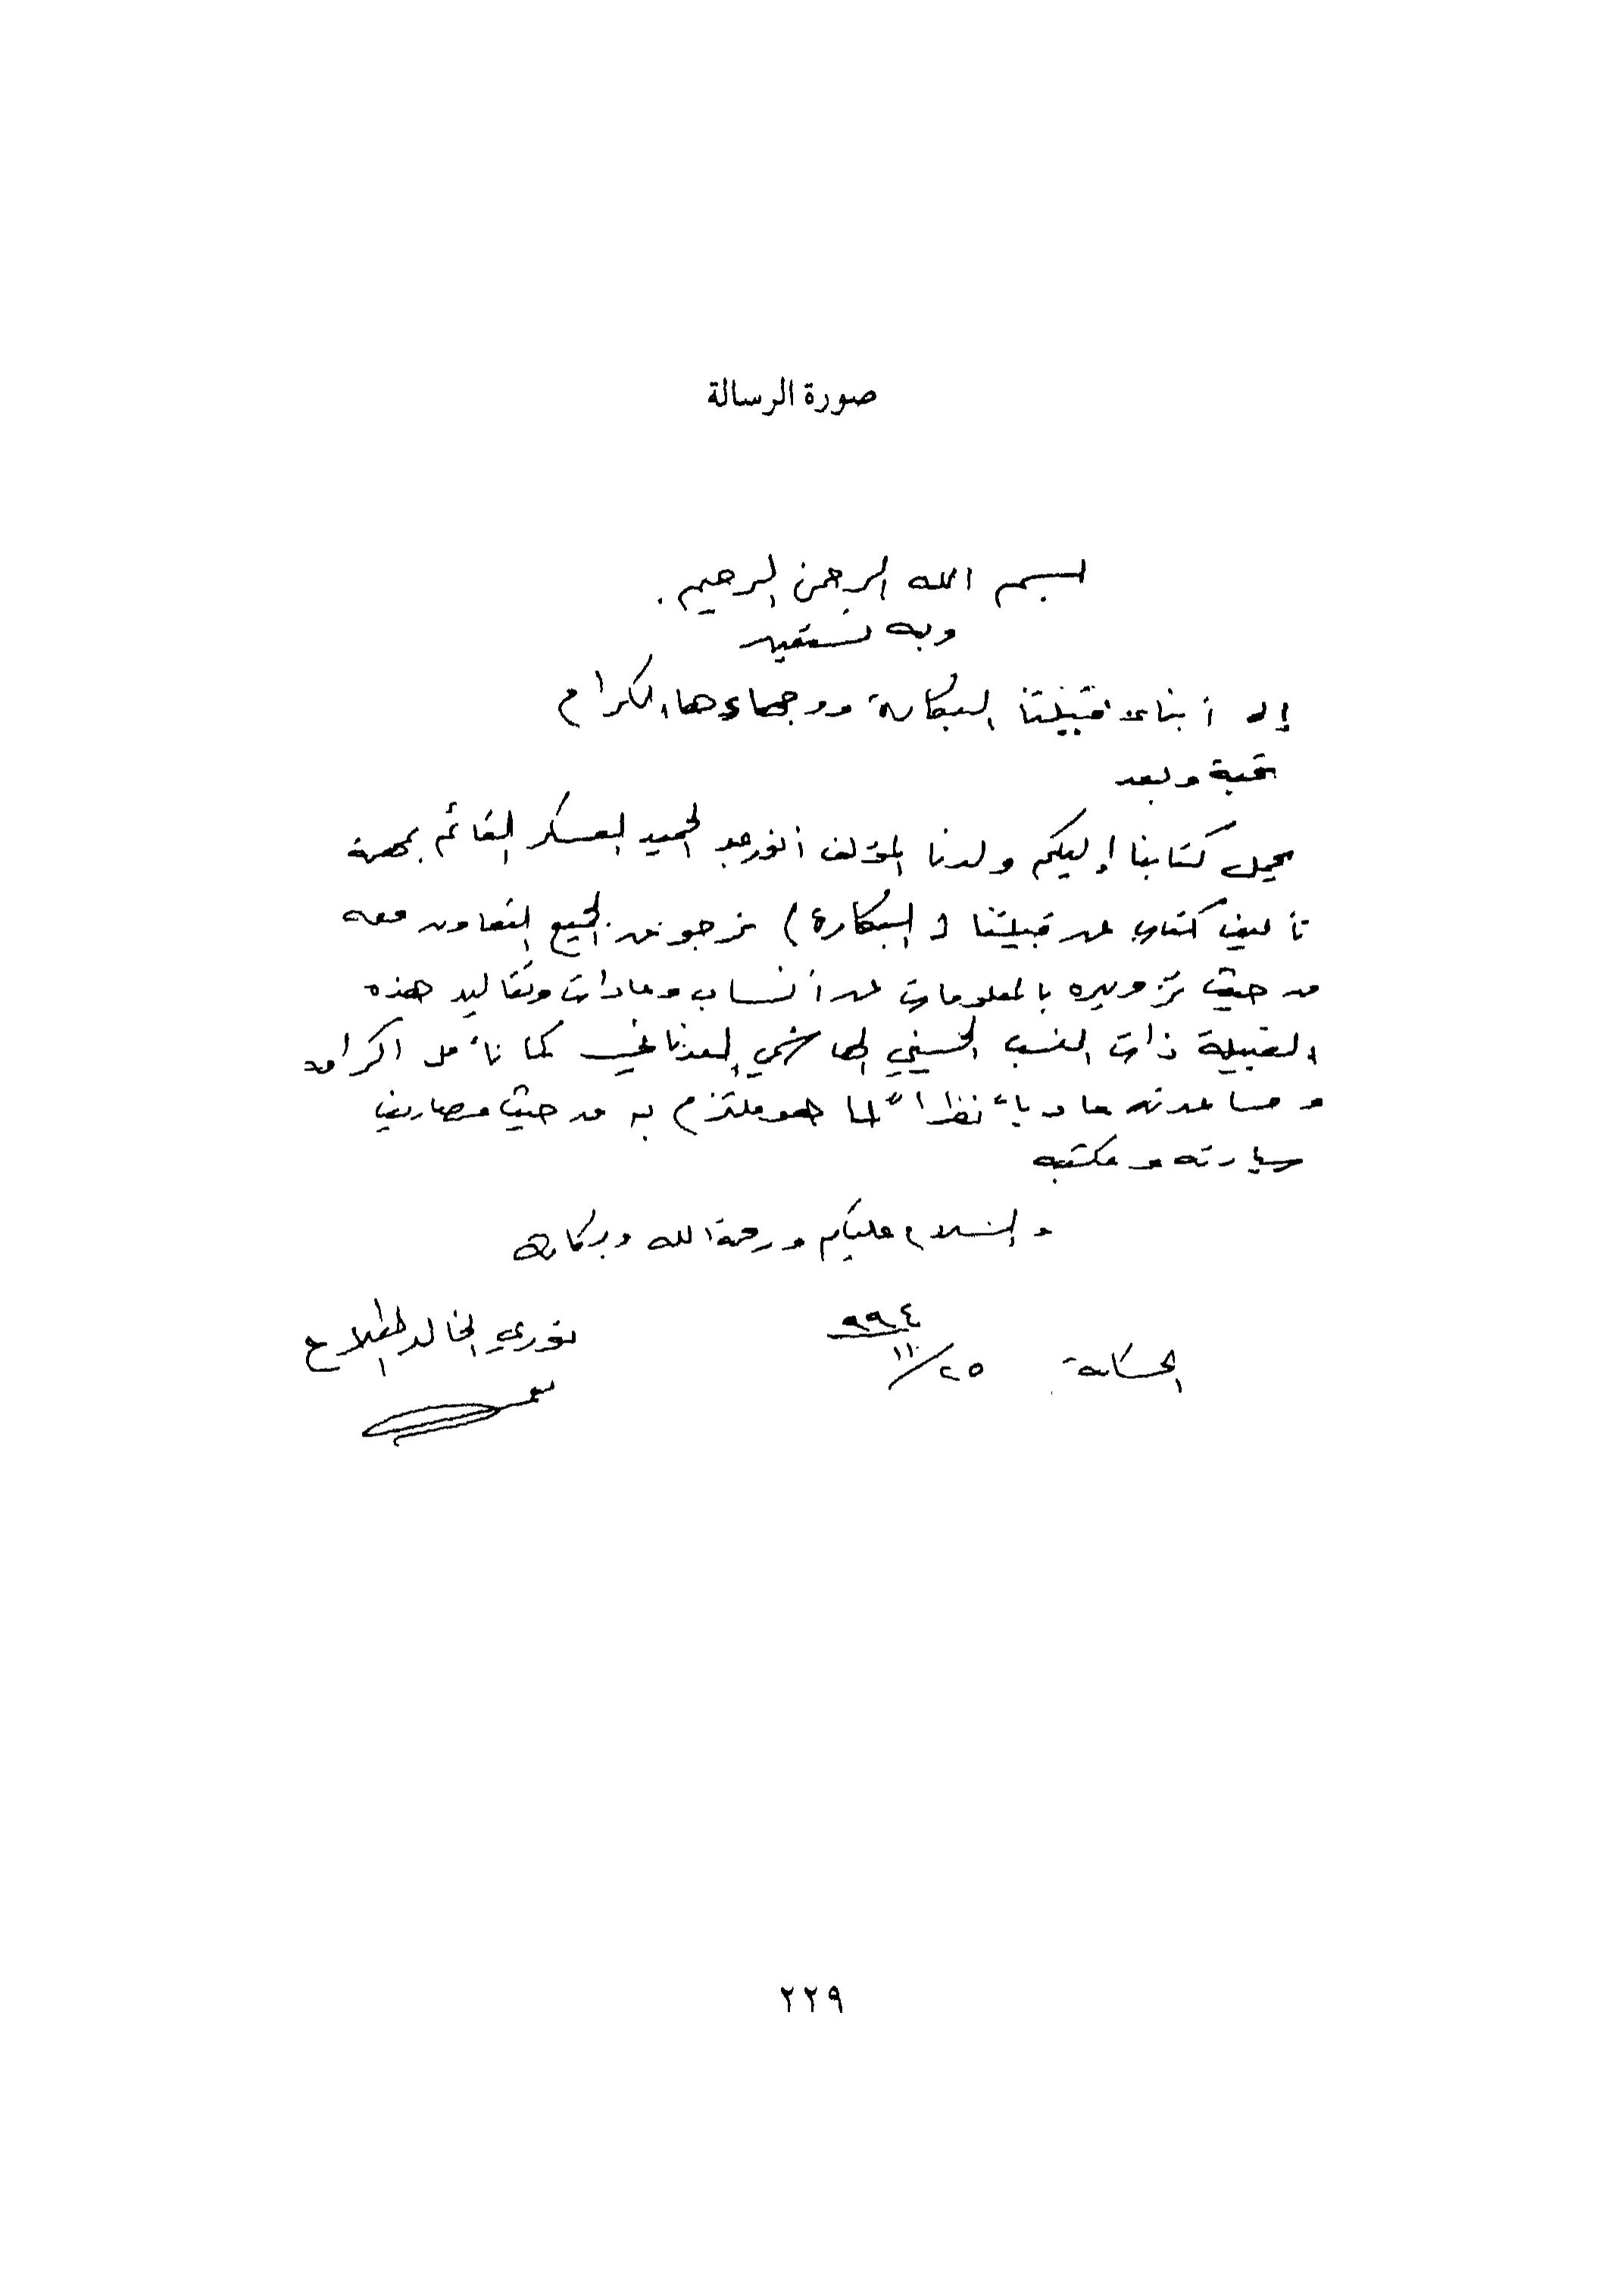 صورة الرسالة
بسم الله الرحمن الرحيم .
وبه نستعين
إلى أبناء قبيلتنا البكارة ووجهاءها الكرام
تحية وبعد
يحمل كتابنا إليكم ولدنا المؤلف أنور عبد الحميد العسكر القائم بمهمة
تأليف كتاب عن قبيلتنا ( البكارة ) نرجو من الجميع التعاون معه
من حيث تزويده بالمعلومات عن أنساب وعادات وتقاليد هذه
القبيلة ذات النسب الحسيني الهاشمي العدناني كما نأمل اكرامه
ومساعدته مادياً نظراً لما هو ملتزم به من حيث مصاريف
سيارته ومكتبه
والسلام عليكم ورحمة الله وبركاته
نوري الخالد الطلاع
٩٩٤
٢٥/١١
٢٢٩